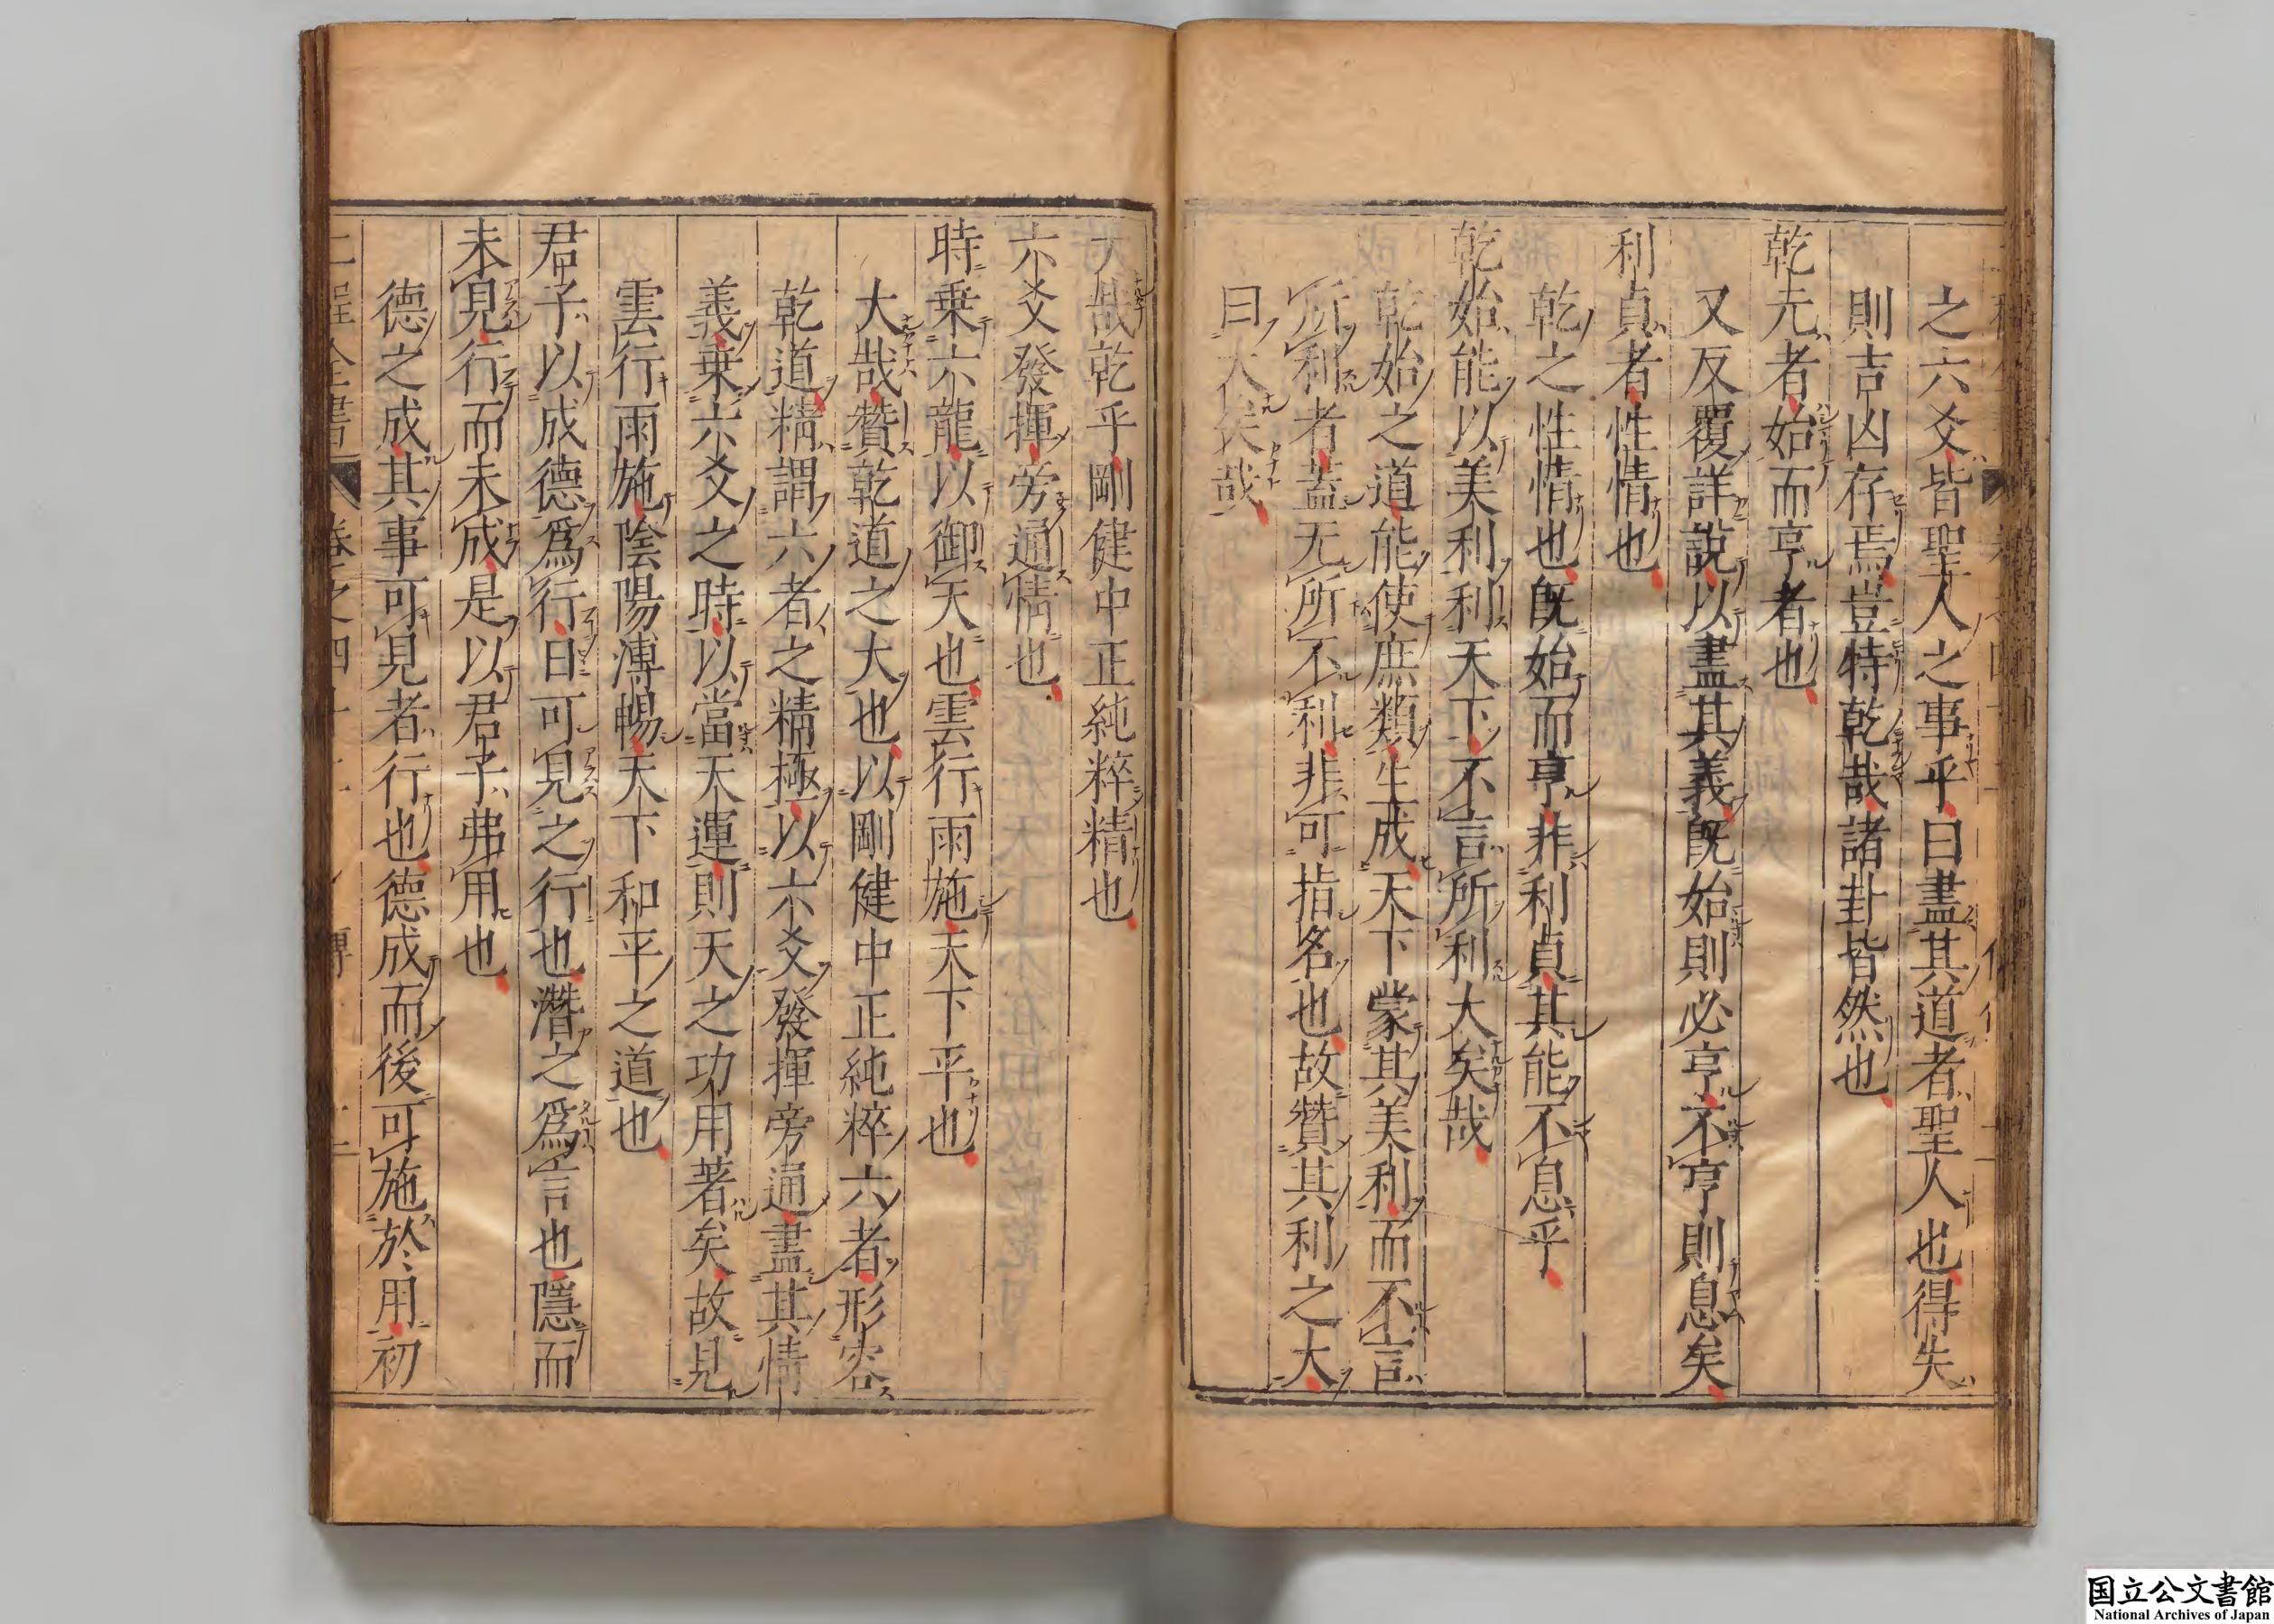 之六爻皆聖人之事乎曰盡其道者聖人也得失
則吉凶存焉豈特乾哉諸卦皆然也
乾元者始而亨者也
又反覆詳說以盡其義既始則必亨不亨則息矣
利貞者性情也
乾之性情也既始而亨非利貞其能不息乎
乾始能以美利利天下不言所利大矣哉
乾始之道能使庶類生成天下蒙其美利而不言
所利者蓋无所不利非可指名也故贊其利之大
曰大矣哉
大哉乾乎剛健中正純粹精也
六爻發揮旁通情也
時乗六龍以御天也雲行雨施天下平也
大哉贊乾道之大也以剛健中正純粹六者形容
乾道精謂六者之精極以六爻發揮旁通盡其情
義乗六爻之時以當天運則天之功用著矣故見
雲行雨施陰陽溥暢天下和平之道也
君子以成德爲行日可見之行也潛之爲言也隱而
未見行而未成是以君子弗用也
德之成其事可見者行也德成而後可施於用初
二程全書 卷之四十二
国立公文書館
National Archives of Japan